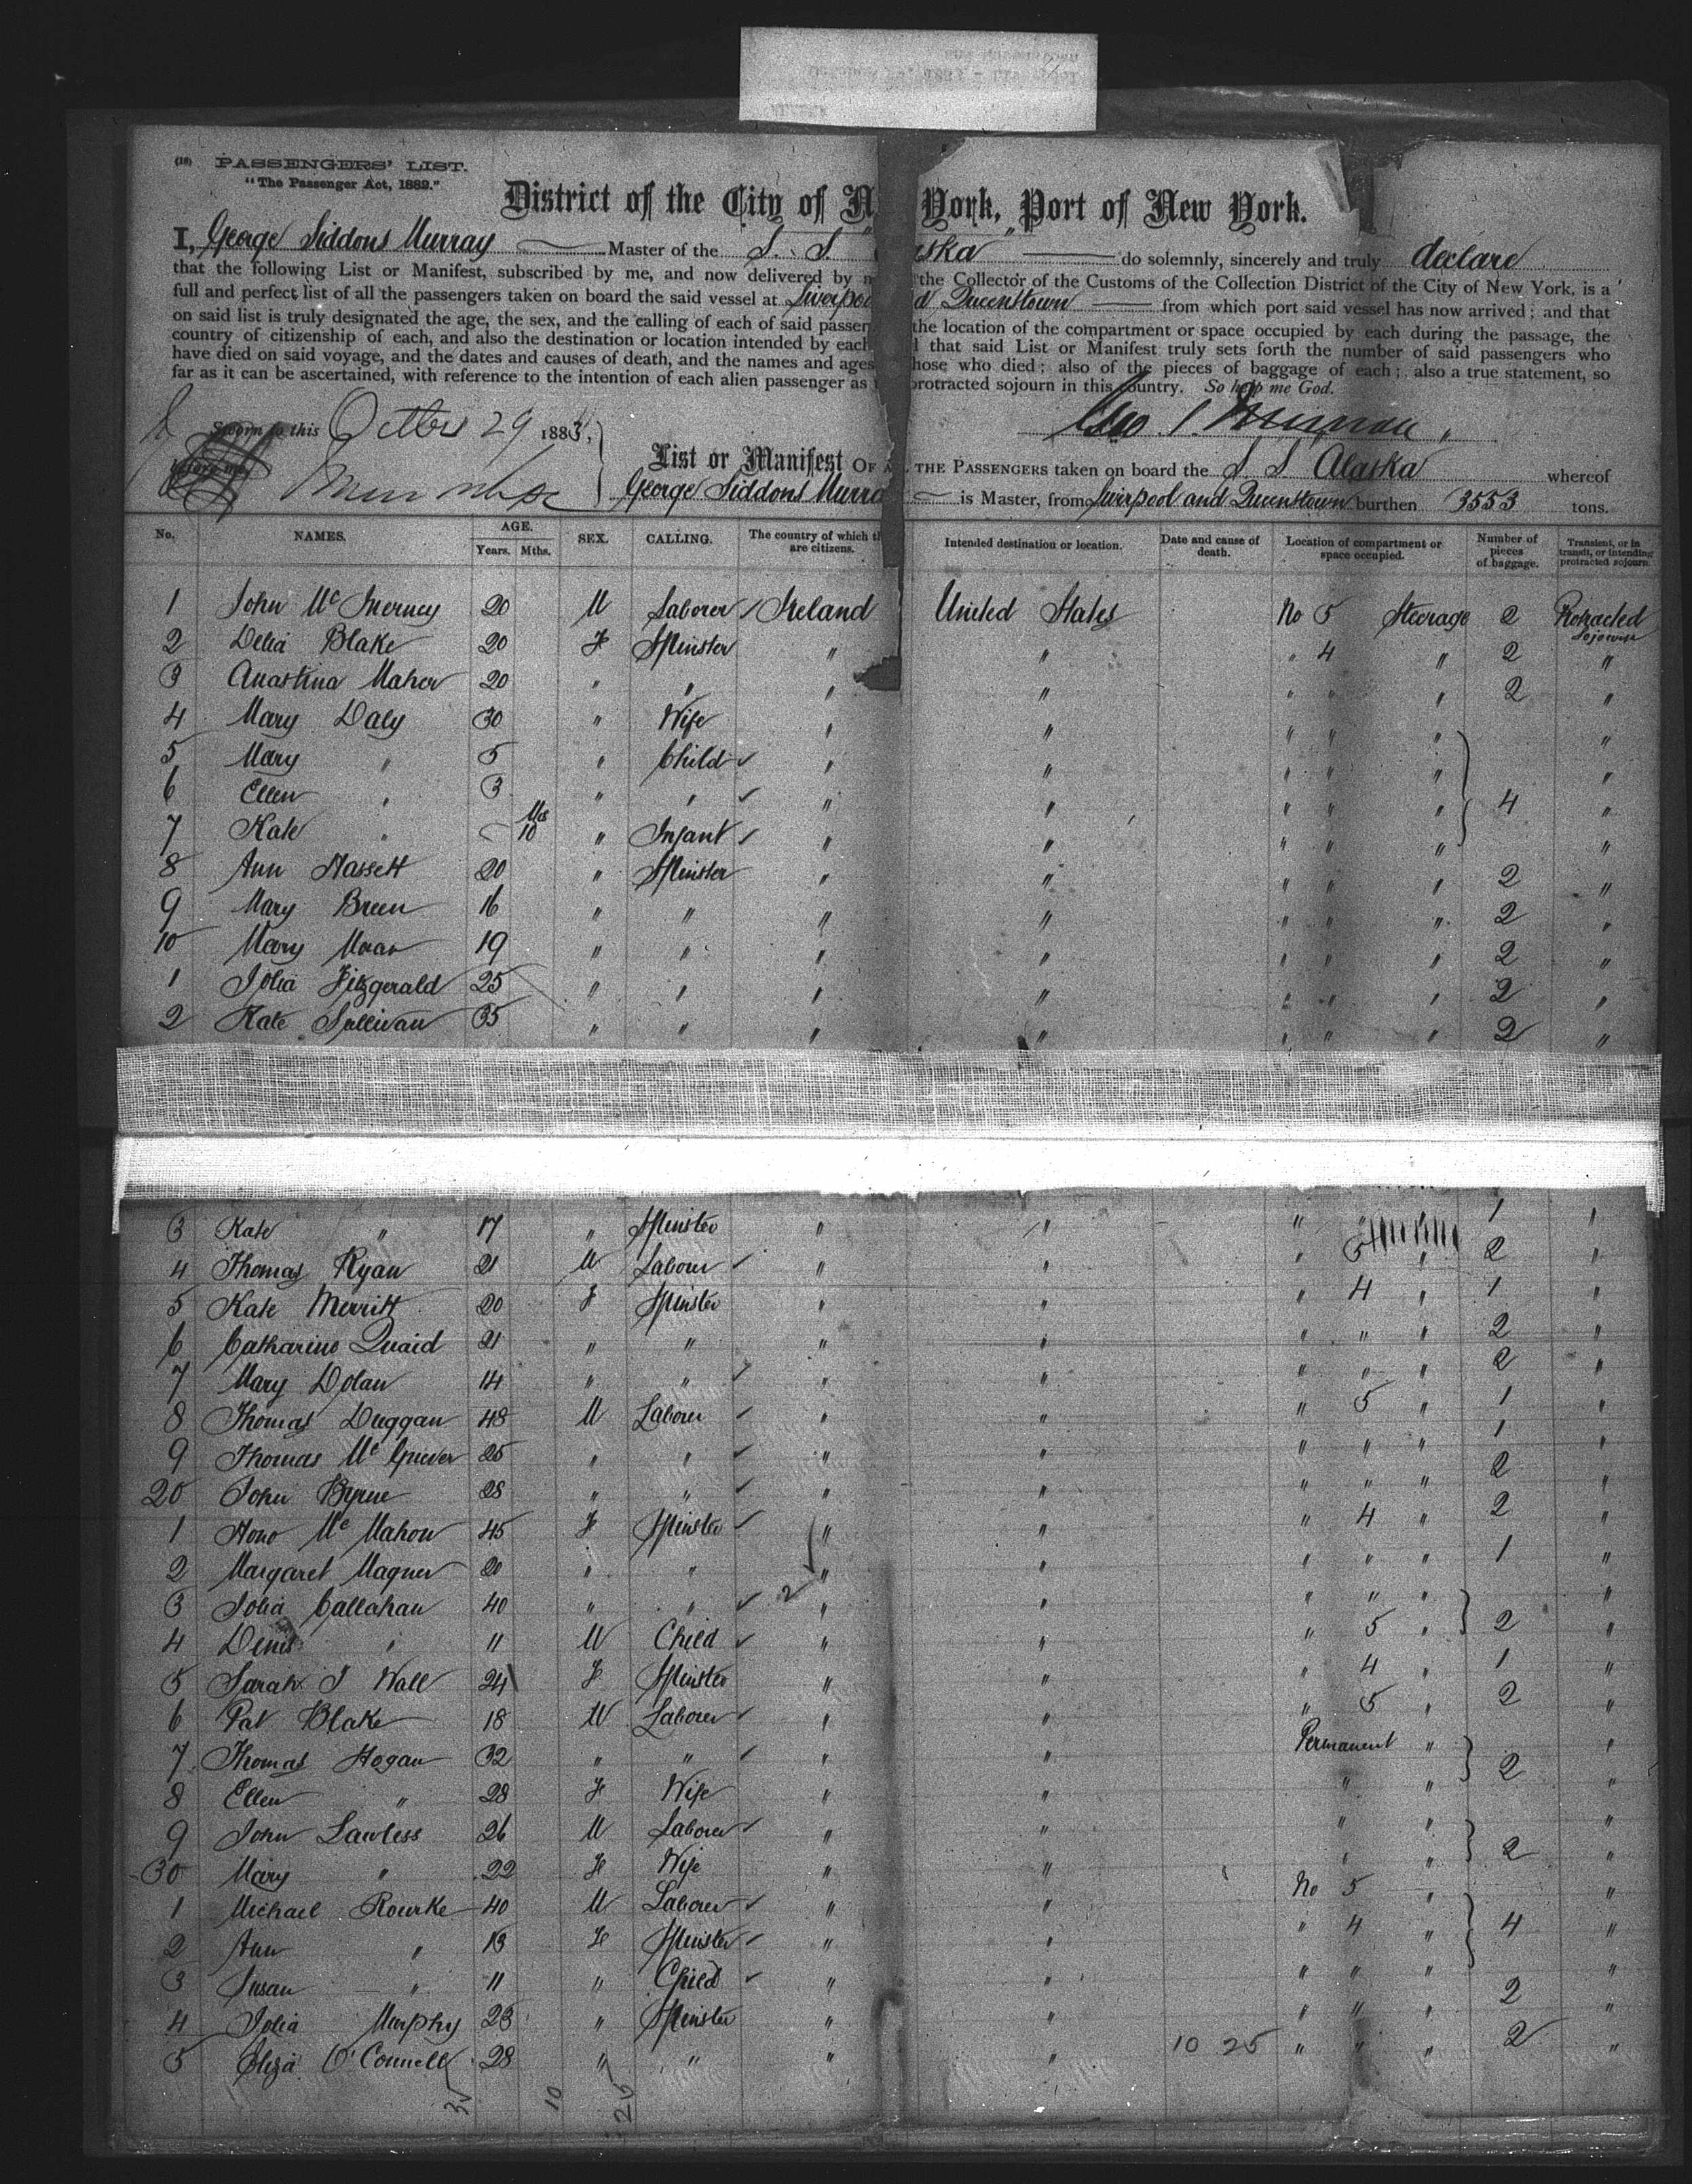 (18) PASSENGERS' LIST.
"The Passenger Act, 1882."
District of the City of N York, Port of New York.
I, George Siddons Murray Master of the S. S. aska do solemnly, sincerely and truly declare
that the following List or Manifest, subscribed by me, and now delivered by m the Collector of the Customs of the Collection District of the City of New York, is a
full and perfect list of all the passengers taken on board the said vessel at Liverpoo d Queenstown from which port said vessel has now arrived; and that
on said list is truly designated the age, the sex, and the calling of each of said passen the location of the compartment or space occupied by each during the passage, the
country of citizenship of each, and also the destination or location intended by each that said List or Manifest truly sets forth the number of said passengers who
have died on said voyage, and the dates and causes of death, and the names and ages hose who died; also of the pieces of baggage of each; also a true statement, so
far as it can be ascertained, with reference to the intention of each alien passenger as protracted sojourn in this country. So help me God.
Sworn to this 29 1883, Geo. S. Murray
before me
List or Manifest OF A THE PASSENGERS taken on board the S S Alaska whereof
George Siddons Murra is Master, from Liverpool and Queenstown burthen 3553 tons.
No. NAMES. AGE. Years. Mths. SEX. CALLING. The country of which th are citizens. Intended destination or location. Date and cause of death. Location of compartment or space occupied. Number of pieces of baggage. Transient, or in transit, or intending protracted sojourn.
1 John McInerney 20 M Laborer Ireland United States No 5 Steerage 2 Protracted Sojourn
2 Delia Blake 20 F Spinster " " " 4 " 2 "
3 Anastina Maher 20 " " " " " " " 2 "
4 Mary Daly 30 " Wife " " " " " "
5 Mary " 5 " Child " " " " " "
6 Ellen " 3 " " " " " " " 4 "
7 Kate " Mos 10 " Infant " " " " " "
8 Ann Hassett 20 " Spinster " " " " " 2 "
9 Mary Breen 16 " " " " " " " 2 "
10 Mary Moran 19 " " " " " " " 2 "
1 Julia Fitzgerald 25 " " " " " " " 2 "
2 Kate Sullivan 35 " " " " " " " 2 "
3 Kate " 17 " Spinster " " " " 1 "
4 Thomas Ryan 21 M Laborer " " " 5 " 2 "
5 Kate Merritt 20 F Spinster " " " 4 " 1 "
6 Catharine Quaid 21 " " " " " " " 2 "
7 Mary Dolan 14 " " " " " " " 2 "
8 Thomas Duggan 48 M Laborer " " " 5 " 1 "
9 Thomas Mc 25 " " " " " " " 1 "
20 John Byrne 28 " " " " " " " 2 "
1 Hono McMahon 45 F Spinster " " " 4 " 2 "
2 Margaret Magner 20 " " " " " " " 1 "
3 Julia Callahan 40 " " 2 " " " " " "
4 Denis " 11 M Child " " " 5 " 2 "
5 Sarah J Wall 24 F Spinster " " " 4 " 1 "
6 Pat Blake 18 M Laborer " " " 5 " 2 "
7 Thomas Hogan 32 " " " " Permanent " "
8 Ellen " 28 F Wife " " " " 2 "
9 John Lawless 26 M Laborer " " " " "
30 Mary " 22 F Wife " " " " 2 "
1 Michael Rourke 40 M Laborer " " No 5 " "
2 Ann " 13 F Spinster " " " 4 " 4 "
3 Susan " 11 " Child " " " " " "
4 Julia Murphy 23 " Spinster " " " " " 2 "
5 Eliza O'Connell 28 " " " " 10 25 " " " 2 "
10